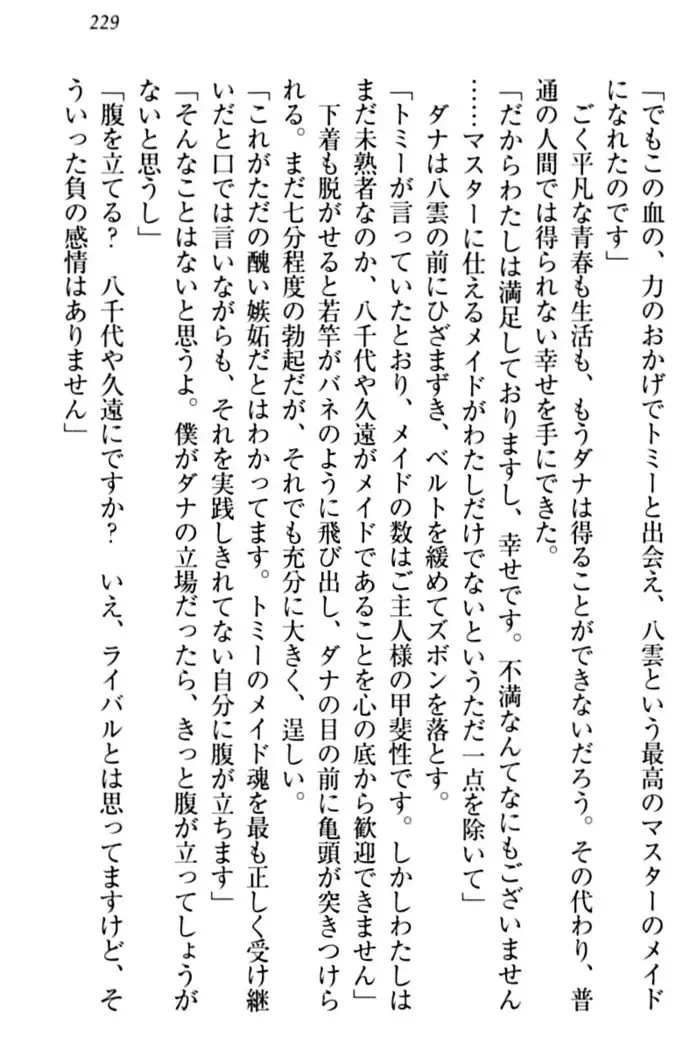 229
「でもこの血の、力のおかげでトミーと出会え、八雲という最高のマスターのメイド
になれたのです」
　ごく平凡な青春も生活も、もうダナは得ることができないだろう。その代わり、普
通の人間では得られない幸せを手にできた。
「だからわたしは満足しておりますし、幸せです。不満なんてなにもございません
……マスターに仕えるメイドがわたしだけでないというただ一点を除いて」
　ダナは八雲の前にひざまずき、ベルトを緩めてズボンを落とす。
「トミーが言っていたとおり、メイドの数はご主人様の甲斐性です。しかしわたしは
まだ未熟者なのか、八千代や久遠がメイドであることを心の底から歓迎できません」
　下着も脱がせると若竿がバネのように飛び出し、ダナの目の前に亀頭が突きつけら
れる。まだ七分程度の勃起だが、それでも充分に大きく、逞しい。
「これがただの醜い嫉妬だとはわかってます。トミーのメイド魂を最も正しく受け継
いだと口では言いながらも、それを実践しきれてない自分に腹が立ちます」
「そんなことはないと思うよ。僕がダナの立場だったら、きっと腹が立ってしょうが
ないと思うし」
「腹を立てる？　八千代や久遠にですか？　いえ、ライバルとは思ってますけど、そ
ういった負の感情はありません」